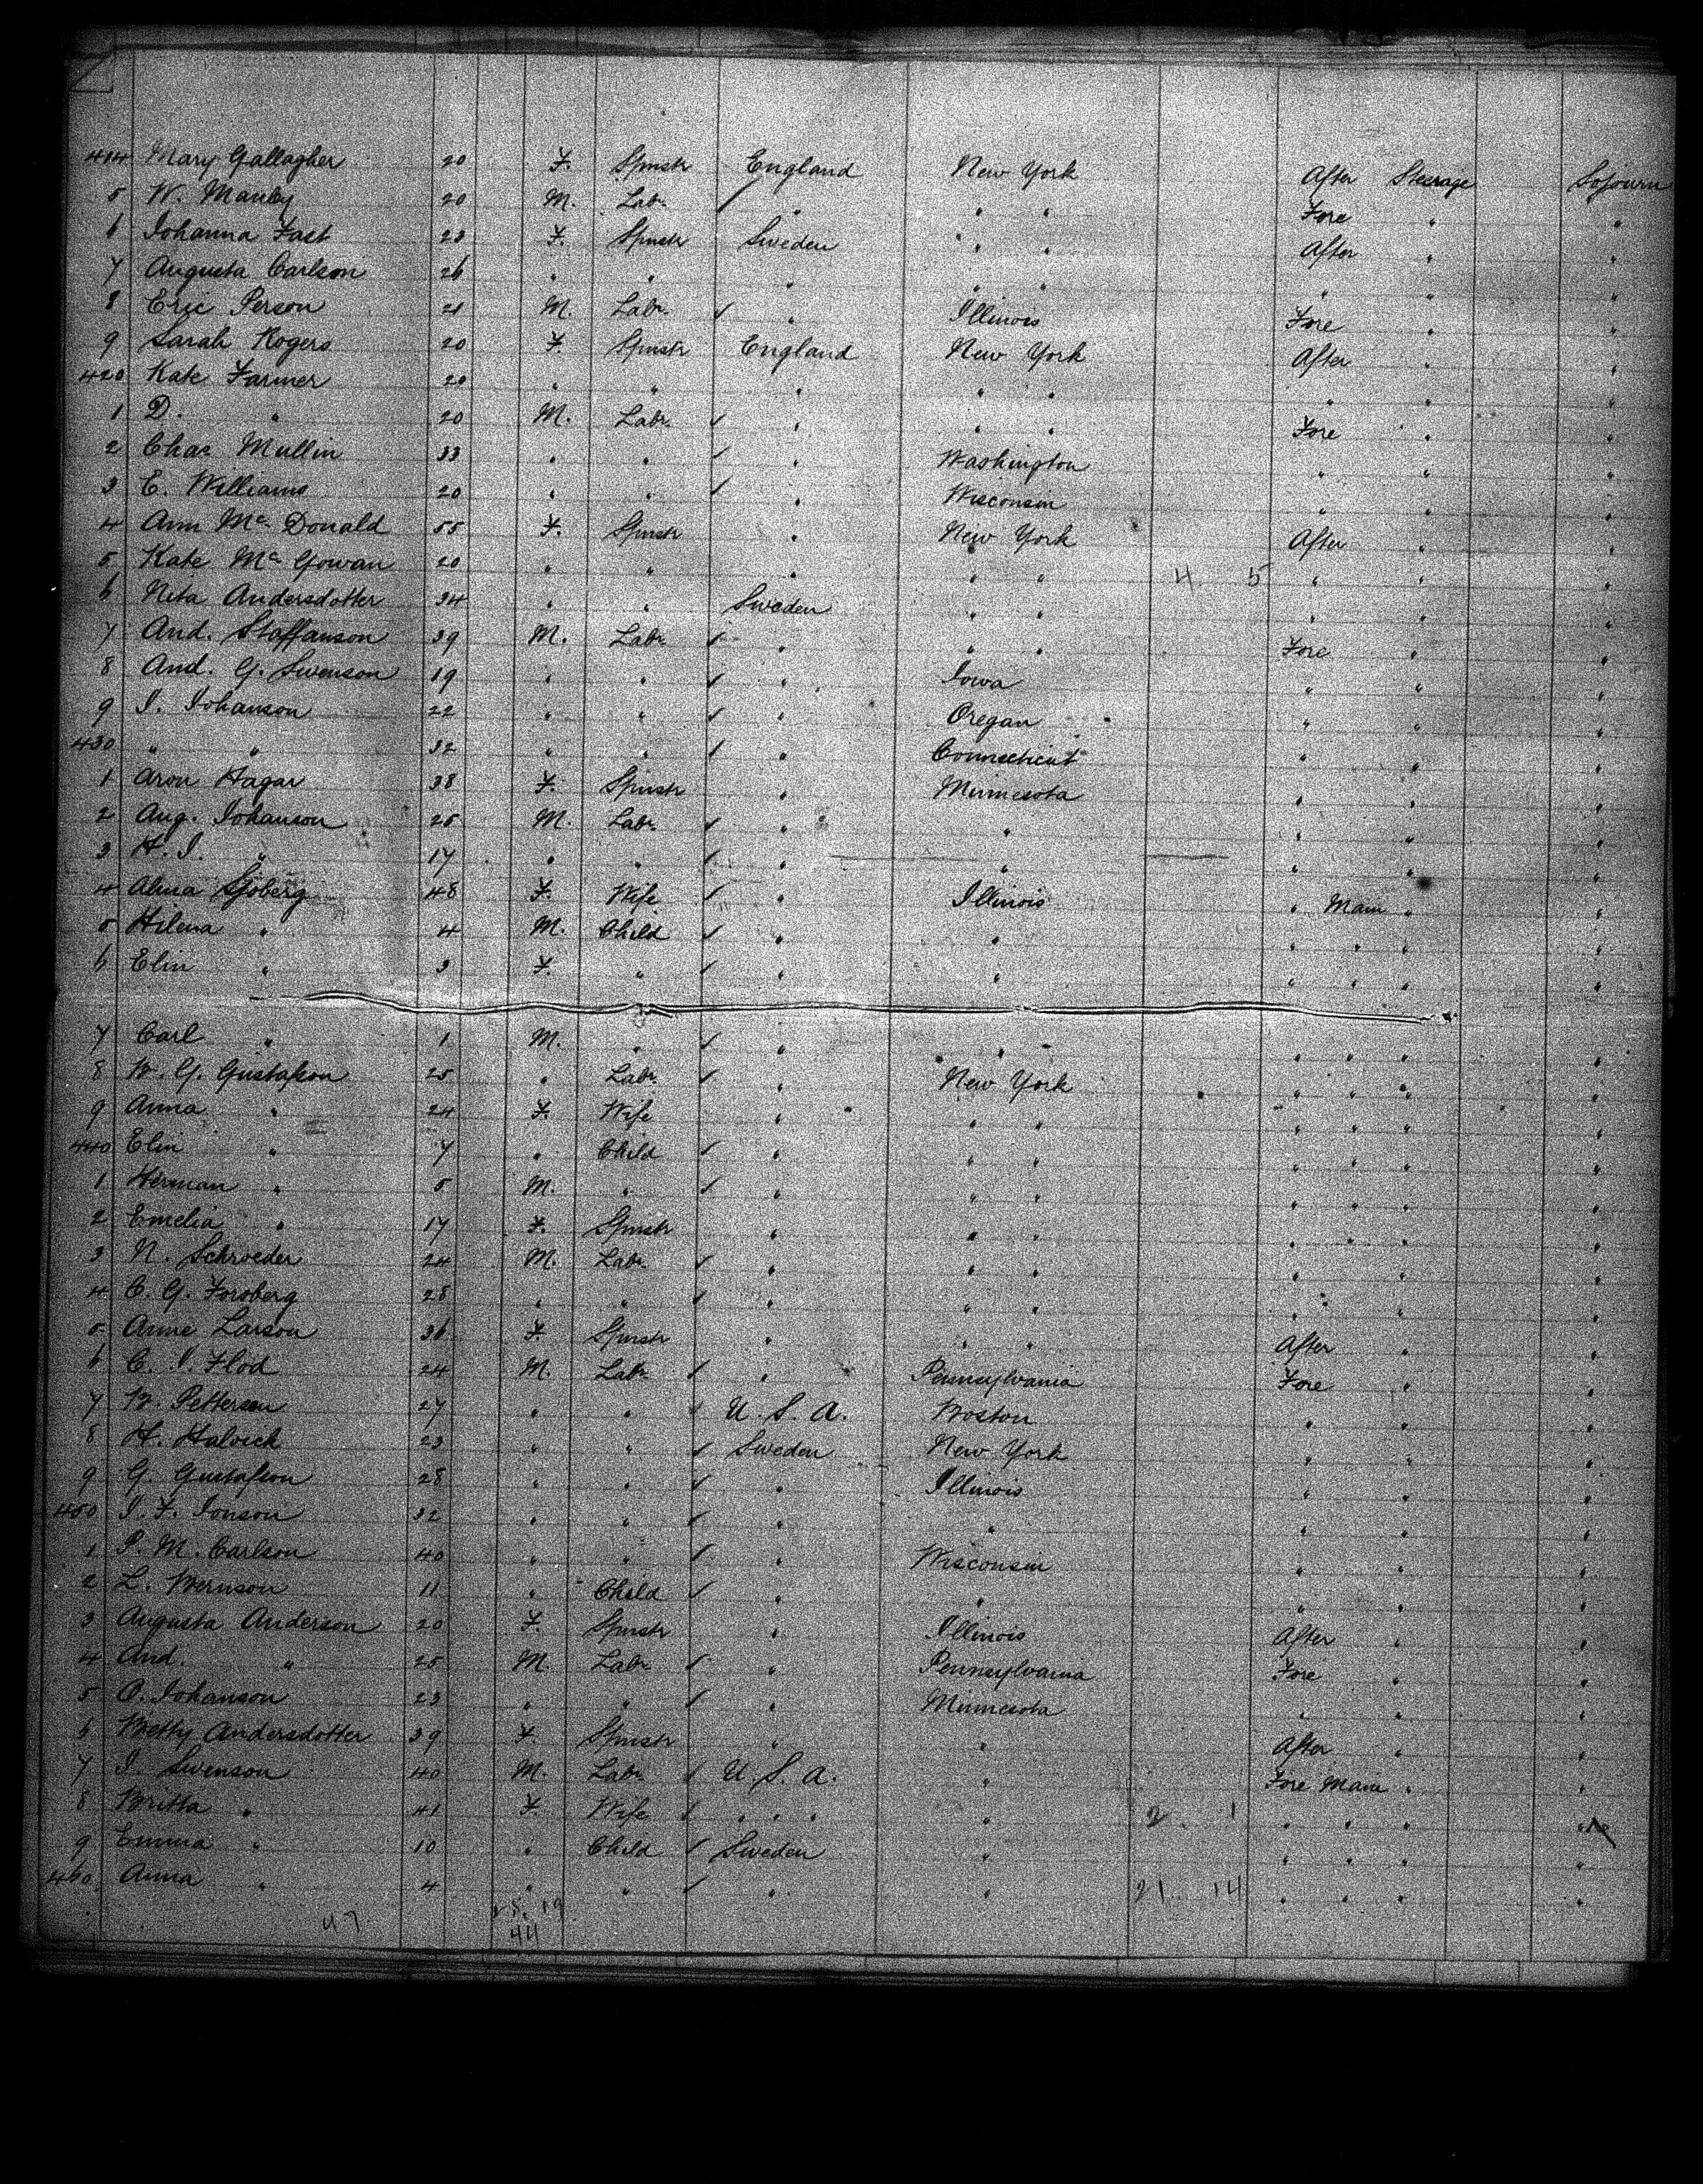 414 Mary Gallagher 20 F. Spinstr England New York After Steerage Sojourn
5 W. Manby 20 M. Labr. " " " Fore " "
6 Johanna Fast 23 F. Spinstr Sweden " " After " "
7 Augusta Carlson 26 " " " " " " " "
8 Eric Person 21 M. Labr. " Illinois Fore " "
9 Sarah Rogers 20 F. Spinstr England New York After " "
420 Kate Farmer 20 " " " " " " " "
1 D. " 20 M. Labr. " " " Fore " "
2 Chas Mullin 33 " " " Washington " " "
3 E. Williams 20 " " " Wisconsin " " "
4 Ann Mc Donald 55 F. Spinstr " New York After " "
5 Kate Mc Gowan 20 " " " " " 4 5 " " "
6 Nita Andersdotter 34 " " Sweden " " " " "
7 And. Staffanson 39 M. Labr. " " " Fore " "
8 And. G. Swenson 19 " " " Iowa " " "
9 I. Johanson 22 " " " Oregan " " "
430 " " 32 " " " Connecticut " " "
1 Aron Hagar 38 F. Spinstr " Minnesota " " "
2 Aug. Johanson 25 M. Labr. " " " " "
3 H. I. " 17 " " " " " " "
4 Alma Sjöberg 48 F. Wife " Illinois " Main " "
5 Hilena " 4 M. Child " " " " " "
6 Elin " 3 F. " " " " " " "
7 Carl " 1 M. " " " " " " "
8 B. G. Gustafson 25 " Labr. " New York " " " "
9 Anna " 24 F. Wife " " " " " " "
440 Elin " 7 " Child " " " " " " "
1 Herman " 5 M. " " " " " " " "
2 Emelia " 17 F. Spinstr " " " " " " "
3 N. Schroeder 24 M. Labr. " " " " " "
4 C. G. Forsberg 28 " " " " " " " " "
5 Anne Larson 36 F. Spinstr " " " After " "
6 C. I. Flod 24 M. Labr. " Pennsylvania Fore " "
7 B. Petterson 27 " " U. S. A. Boston " " "
8 H. Halvick 23 " " Sweden New York " " "
9 G. Gustafson 28 " " " Illinois " " "
450 I. F. Jonson 32 " " " " " " "
1 P. M. Carlson 40 " " " Wisconsin " " "
2 L. Bernson 11 " Child " " " " "
3 Augusta Anderson 20 F. Spinstr " Illinois After " "
4 And. " 25 M. Labr. " Pennsylvania Fore " "
5 O. Johanson 23 " " " Minnesota " " "
6 Betty Andersdotter 39 F. Spinstr " " After " "
7 I. Swenson 40 M. Labr. U. S. A. " Fore Main " "
8 Britta " 41 F. Wife " " " " 2 1 " " " "
9 Emma " 10 " Child Sweden " " " " "
460 Anna " 4 " " " " 21 14 " " " "
47 25. 19
44